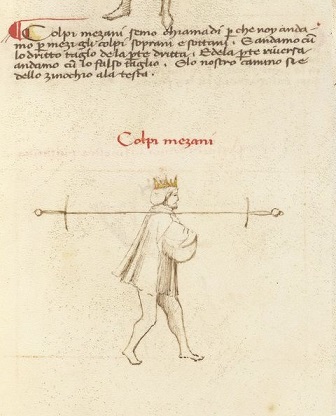 Colpi mezani semo chiamadi p che noy anda
mo p mezi gli colpi soprani e sottani. E andamo cū
lo dritto taglo de la pte dritta. E de la pte riversa
andamo cū lo falso taglio. E lo nostro camino si e
dello zinochio ala testa.
Colpi mezani